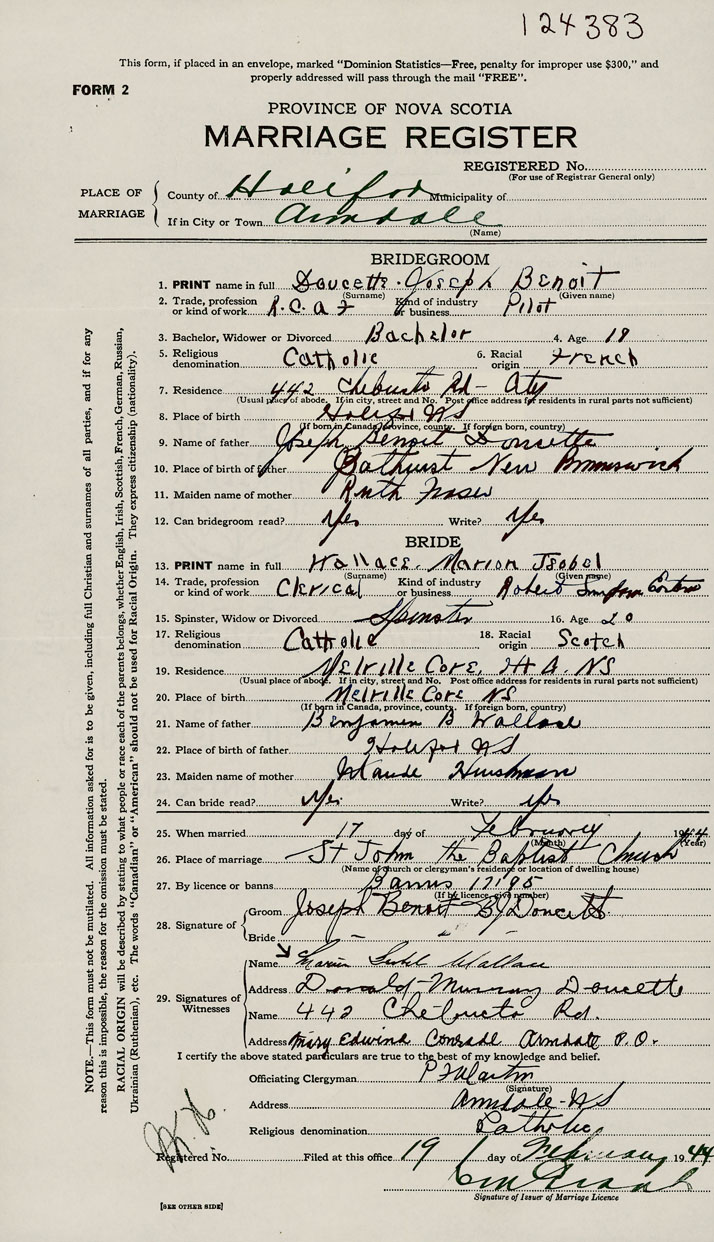 124383
This form, if placed in an envelope, marked “Dominion Statistics—Free, penalty for improper use $300,” and
properly addressed will pass through the mail “FREE”.
FORM 2
PROVINCE OF NOVA SCOTIA
MARRIAGE REGISTER
REGISTERED No.
(For use of Registrar General only)
PLACE OF MARRIAGE
County of Halifax Municipality of
If in City or Town Armdale
(Name)
BRIDEGROOM
1. PRINT name in full Doucette. Joseph Benoit
(Surname) (Given name)
2. Trade, profession or kind of work R.C.A.F Kind of industry or business Pilot
3. Bachelor, Widower or Divorced Bachelor 4. Age 19
5. Religious denomination Catholic 6. Racial origin French
7. Residence 442 Chebucto Rd - City
(Usual place of abode. If in city, street and No. Post office address for residents in rural parts not sufficient)
8. Place of birth Halifax NS
(If born in Canada, province, county. If foreign born, country)
9. Name of father Joseph Benoit Doucette
10. Place of birth of father Bathurst New Brunswick
11. Maiden name of mother Ruth Fraser
12. Can bridegroom read? Yes Write? Yes
BRIDE
13. PRINT name in full Wallace. Marion Isobel
(Surname) (Given name)
14. Trade, profession or kind of work Clerical Kind of industry or business Robert Simpson Eastern
15. Spinster, Widow or Divorced Spinster 16. Age 20
17. Religious denomination Catholic 18. Racial origin Scotch
19. Residence Melville Cove, Hfx. NS
(Usual place of abode. If in city, street and No. Post office address for residents in rural parts not sufficient)
20. Place of birth Melville Cove NS
(If born in Canada, province, county. If foreign born, country)
21. Name of father Benjamin B Wallace
22. Place of birth of father Halifax NS
23. Maiden name of mother Maude
24. Can bride read? Yes Write? yes
25. When married 17 day of February 1944
(Month) (Year)
26. Place of marriage St John the Baptist Church
(Name of church or clergyman's residence or location of dwelling house)
27. By licence or banns Banns 17195
(If by licence, give number)
28. Signature of
Groom Joseph Benoit Doucette
Bride
29. Signatures of Witnesses
Name Marion Isobel Wallace
Address Donald Murray Doucette
Name 442 Chebucto Rd.
Address Mary Edwina Conrade Armdale P.O.
I certify the above stated particulars are true to the best of my knowledge and belief.
Officiating Clergyman P J Martin
(Signature)
Address Armdale - NS
Religious denomination Catholic
Registered No. Filed at this office 19 day of February 1944
Signature of Issuer of Marriage Licence
[SEE OTHER SIDE]
NOTE.—This form must not be mutilated. All information asked for is to be given, including full Christian and surnames of all parties, and if for any
reason this is impossible, the reason for the omission must be stated.
RACIAL ORIGIN will be described by stating to what people or race each of the parents belongs, whether English, Irish, Scottish, French, German, Russian,
Ukrainian (Ruthenian), etc. The words “Canadian” or “American” should not be used for Racial Origin. They express citizenship (nationality).